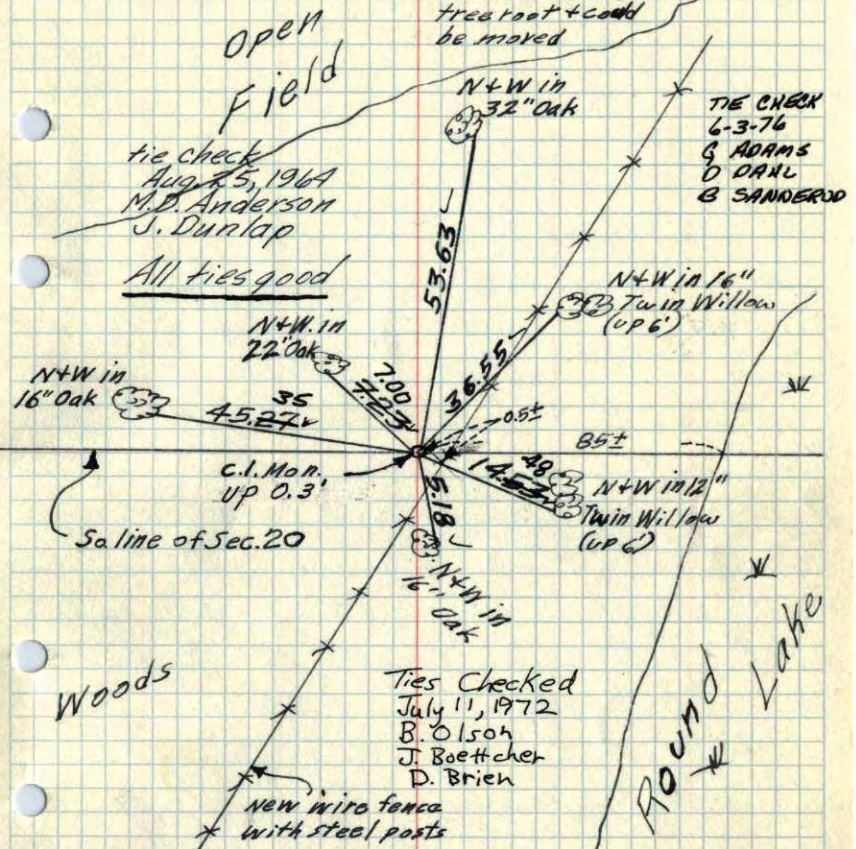 tree root + could
be moved
Open
Field
N+W in
32" Oak
TIE CHECK
6-3-76
G ADAMS
D DAHL
B SANNERUD
tie check
Aug. 25, 1964
M.D. Anderson
J. Dunlap
All ties good
53.63
N+W in 16"
Twin Willow
(up 6')
N+W. in
22" Oak
7.00
7.23
36.55
N+W in
16" Oak
35
45.27
0.5±
85±
C.I. Mon.
up 0.3'
48
14.53
N+W in 12"
Twin Willow
(up 6')
5.18
So. line of Sec. 20
N+W in
16" Oak
Woods
Ties Checked
July 11, 1972
B. Olson
J. Boettcher
D. Brien
Round Lake
New wire fence
with steel posts